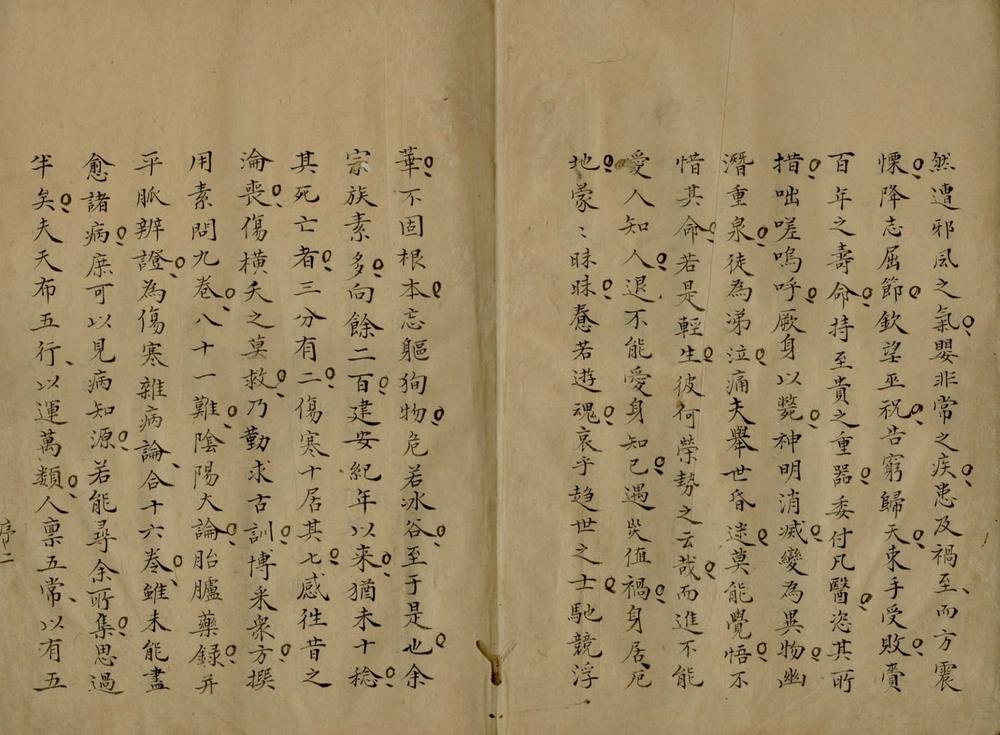 然遭邪風之氣嬰非常之疾患及禍至而方震
慄降志屈節欽望巫祝告窮歸天束手受敗賷
百年之壽命持至貴之重器委付凡醫恣其所
措咄嗟嗚呼厥身以斃神明消滅變為異物幽
潛重泉徒為涕泣痛夫舉世昏迷莫能覺悟不
惜其命若是輕生彼何榮勢之云哉而進不能
愛人知人退不能愛身知己遇災值禍身居厄
地蒙〻昧昧惷若遊魂哀乎趍世之士馳競浮
華不固根本忘軀狥物危若冰谷至于是也余
宗族素多向餘二百建安紀年以来猶未十稔
其死亡者三分有二傷寒十居其七感徃昔之
淪喪傷橫夭之莫救乃勤求古訓博采衆方撰
用素問九卷八十一難陰陽大論胎臚藥録并
平脈辨證為傷寒雜病論合十六卷雖未能盡
愈諸病庶可以見病知源若能尋余所集思過
半矣夫天布五行以運萬類人禀五常以有五
序二